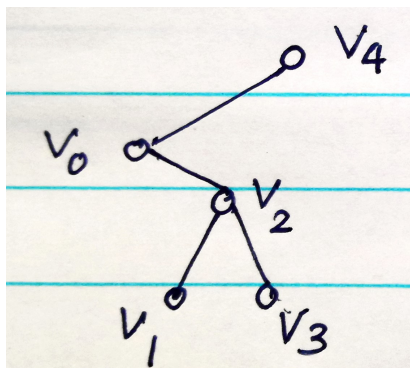 V4
V0
V2
V1
V3